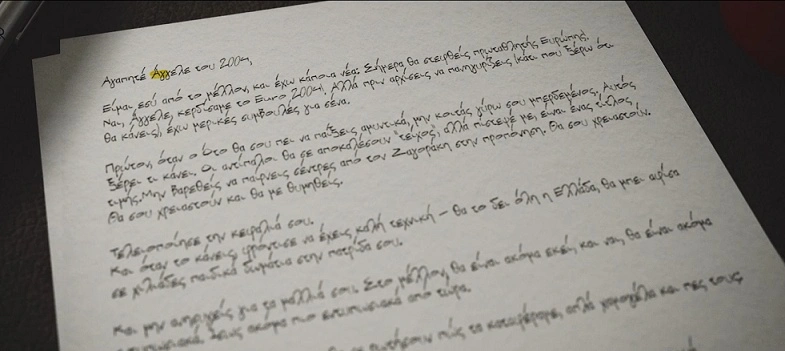 Αγαπητέ Άγγελε του 2004,
Είμαι εσύ από το μέλλον, και έχω κάποια νέα: Σήμερα θα στεφθείς πρωταθλητής Ευρώπης!
Ναι, Άγγελε, κερδίσαμε το Euro 2004! Αλλά πριν αρχίσεις να πανηγυρίζεις (κάτι που ξέρω ότι
θα κάνεις), έχω μερικές συμβουλές για σένα.
Πρώτον, όταν ο Ότο θα σου πει να παίξεις αμυντικά, μην κοιτάς γύρω σου μπερδεμένος. Αυτός
ξέρει τι κάνει. Οι αντίπαλοι θα σε αποκαλέσουν 'τείχος', αλλά πίστεψέ με, είναι ένας τίτλος
τιμής. Μην βαρεθείς να παίρνεις σέντρες από τον Ζαγοράκη στην προπόνηση. Θα σου χρειαστούν.
Θα σου χρειαστούν και θα με θυμηθείς.
Τελειοποίησε την κεφαλιά σου.
Και όταν το κάνεις, φρόντισε να έχεις καλή τεχνική – θα το δει όλη η Ελλάδα, θα μπει αφίσα
σε χιλιάδες παιδικά δωμάτια στην πατρίδα σου.
Και μην ανησυχείς για τα μαλλιά σου. Στο μέλλον, θα είναι ακόμα εκεί, και ναι, θα είναι ακόμα
ίσως ακόμα πιο εντυπωσιακά από τώρα.
πώς τα καταφέραμε, απλά χαμογέλα και πες τους